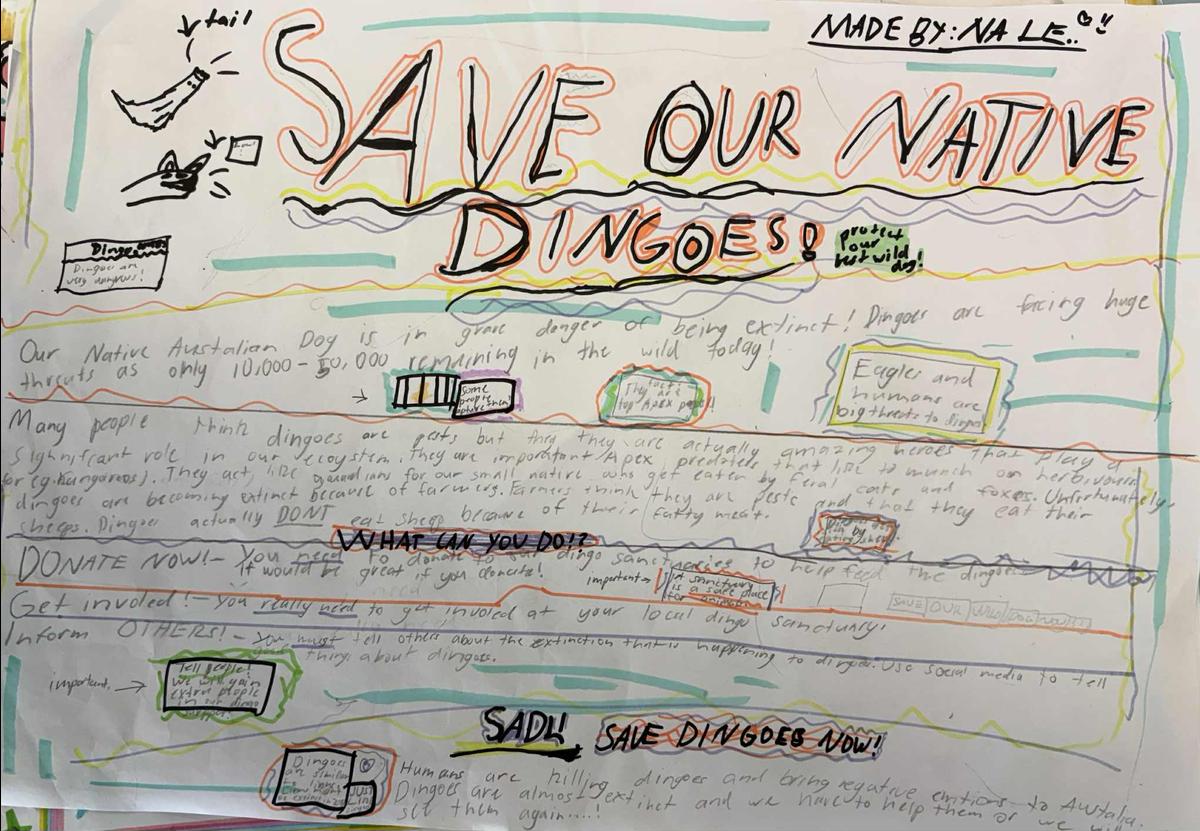 tail
MADE BY: NA LE..
SAVE OUR NATIVE
DINGOES!
protect
our
best wild
dog!
Dingoes are
very dangerous!
Our Native Australian Dog is in grave danger of being extinct! Dingoes are facing huge
threats as only 10,000 - 50,000 remaining in the wild today!
Some
people
capture them!
fact:
They are
top Apex
Eagles and
humans are
big threats to dingoes
Many people think dingoes are pests but they are actually amazing heroes that play a
significant role in our ecosystem. They are important Apex predators that like to munch on herbivours
(for eg. Kangaroos). They act like guardians for our small native who get eaten by feral cats and foxes. Unfortunately,
dingoes are becoming extinct because of farmers. Farmers think they are pests and that they eat their
sheeps. Dingoes actually DONT eat sheep because of their fatty meat.
WHAT CAN YOU DO!?
DONATE NOW! - You need to donate to our dingo sanctuaries to help feed the dingoes.
It would be great if you donate!
important
A sanctuary
is a safe place
for animals
SAVE OUR WILD
Get involed! - You really need to get involed at your local dingo sanctuary!
Inform OTHERS! - You must tell others about the extinction that is happening to dingoes. Use social media to tell
good things about dingoes.
important.
Tell people!
We will gain
extra people
in our dingo
support!
SAD!!
SAVE DINGOES NOW!
Dingoes
are similar
Humans are killing dingoes and bring negative emtions to Australia.
Dingoes are almost extinct and we have to help them or we will
see them again....!